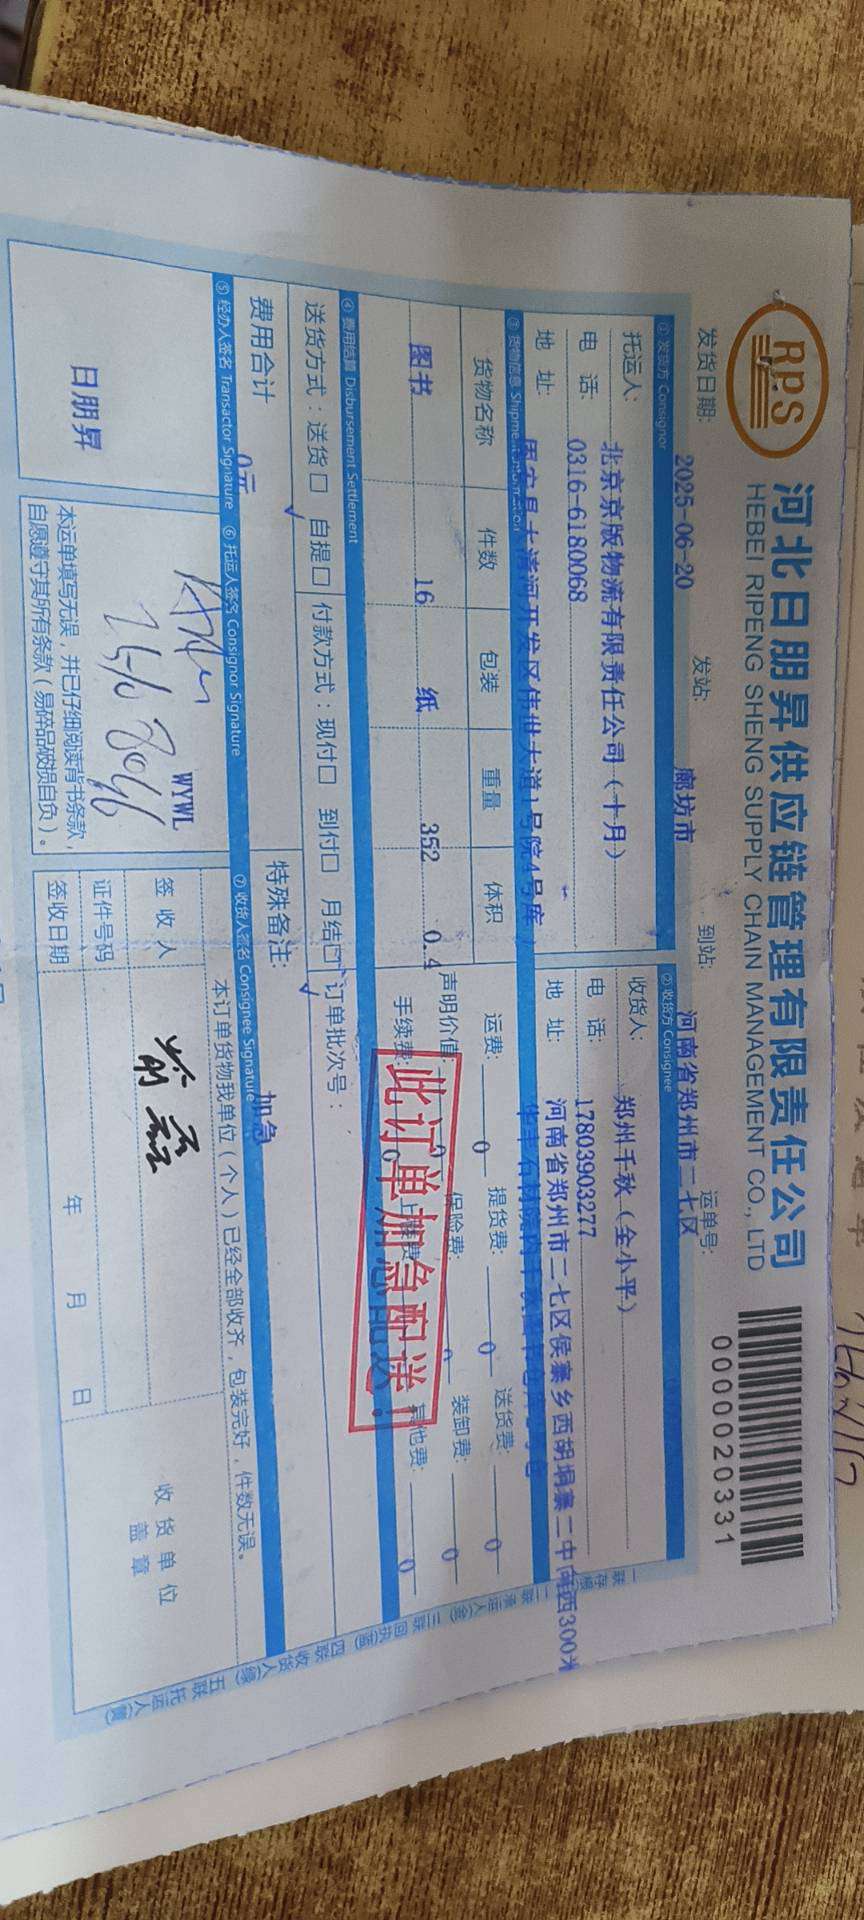 RPS
河北日朋昇供应链管理有限责任公司
HEBEI RIPENG SHENG SUPPLY CHAIN MANAGEMENT CO., LTD
0000020331
发货日期: 2025-06-20 发站: 廊坊市 到站: 河南省郑州市二七区 运单号:
① 发货方 Consignor
托运人: 北京京版物流有限责任公司(十月)
电 话: 0316-6180068
地 址: 固安县大清河开发区伟世大道1号院4号库
② 收货方 Consignee
收货人: 郑州千秋(全小平)
电 话: 17803903277
地 址: 河南省郑州市二七区侯寨乡西胡垌寨二中向西300米
③ 货物信息 Shipment Information
货物名称 件数 包装 重量 体积
图书 16 纸 352 0.4
运费: 0 提货费: 0 送货费: 0
声明价值: 0 保险费: 0 装卸费: 0
手续费: 0 上楼费: 其他费: 0
此订单加急配送!
④ 费用结算 Disbursement Settlement
送货方式:送货□ 自提□ 付款方式:现付□ 到付□ 月结□ 订单批次号:
费用合计 0元
特殊备注: 加急
⑤ 经办人签名 Transactor Signature
日朋昇
⑥ 托运人签名 Consignor Signature
WYWL
本运单填写无误,并已仔细阅读背书条款,
自愿遵守其所有条款(易碎品破损自负)。
⑦ 收货人签名 Consignee Signature
本订单货物我单位(个人)已经全部收齐,包装完好,件数无误。
签 收 人
证件号码
签收日期 年 月 日
收货单位
盖章
一联存根 二联承运人(金) 三联回执(蓝) 四联收货人(绿) 五联托运人(黄)